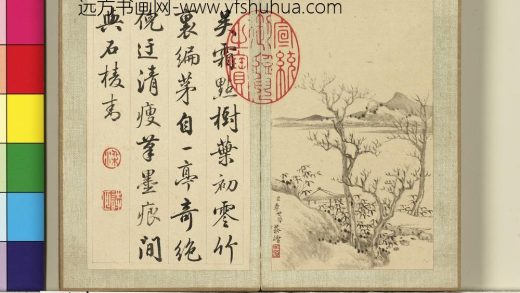 远方书画网-www.yfshuhua.com
吴霜點樹葉初零竹
裏編茅自一亭奇絶
倪迂清瘦筆墨痕間
與石棱青
宣統御覽之寶